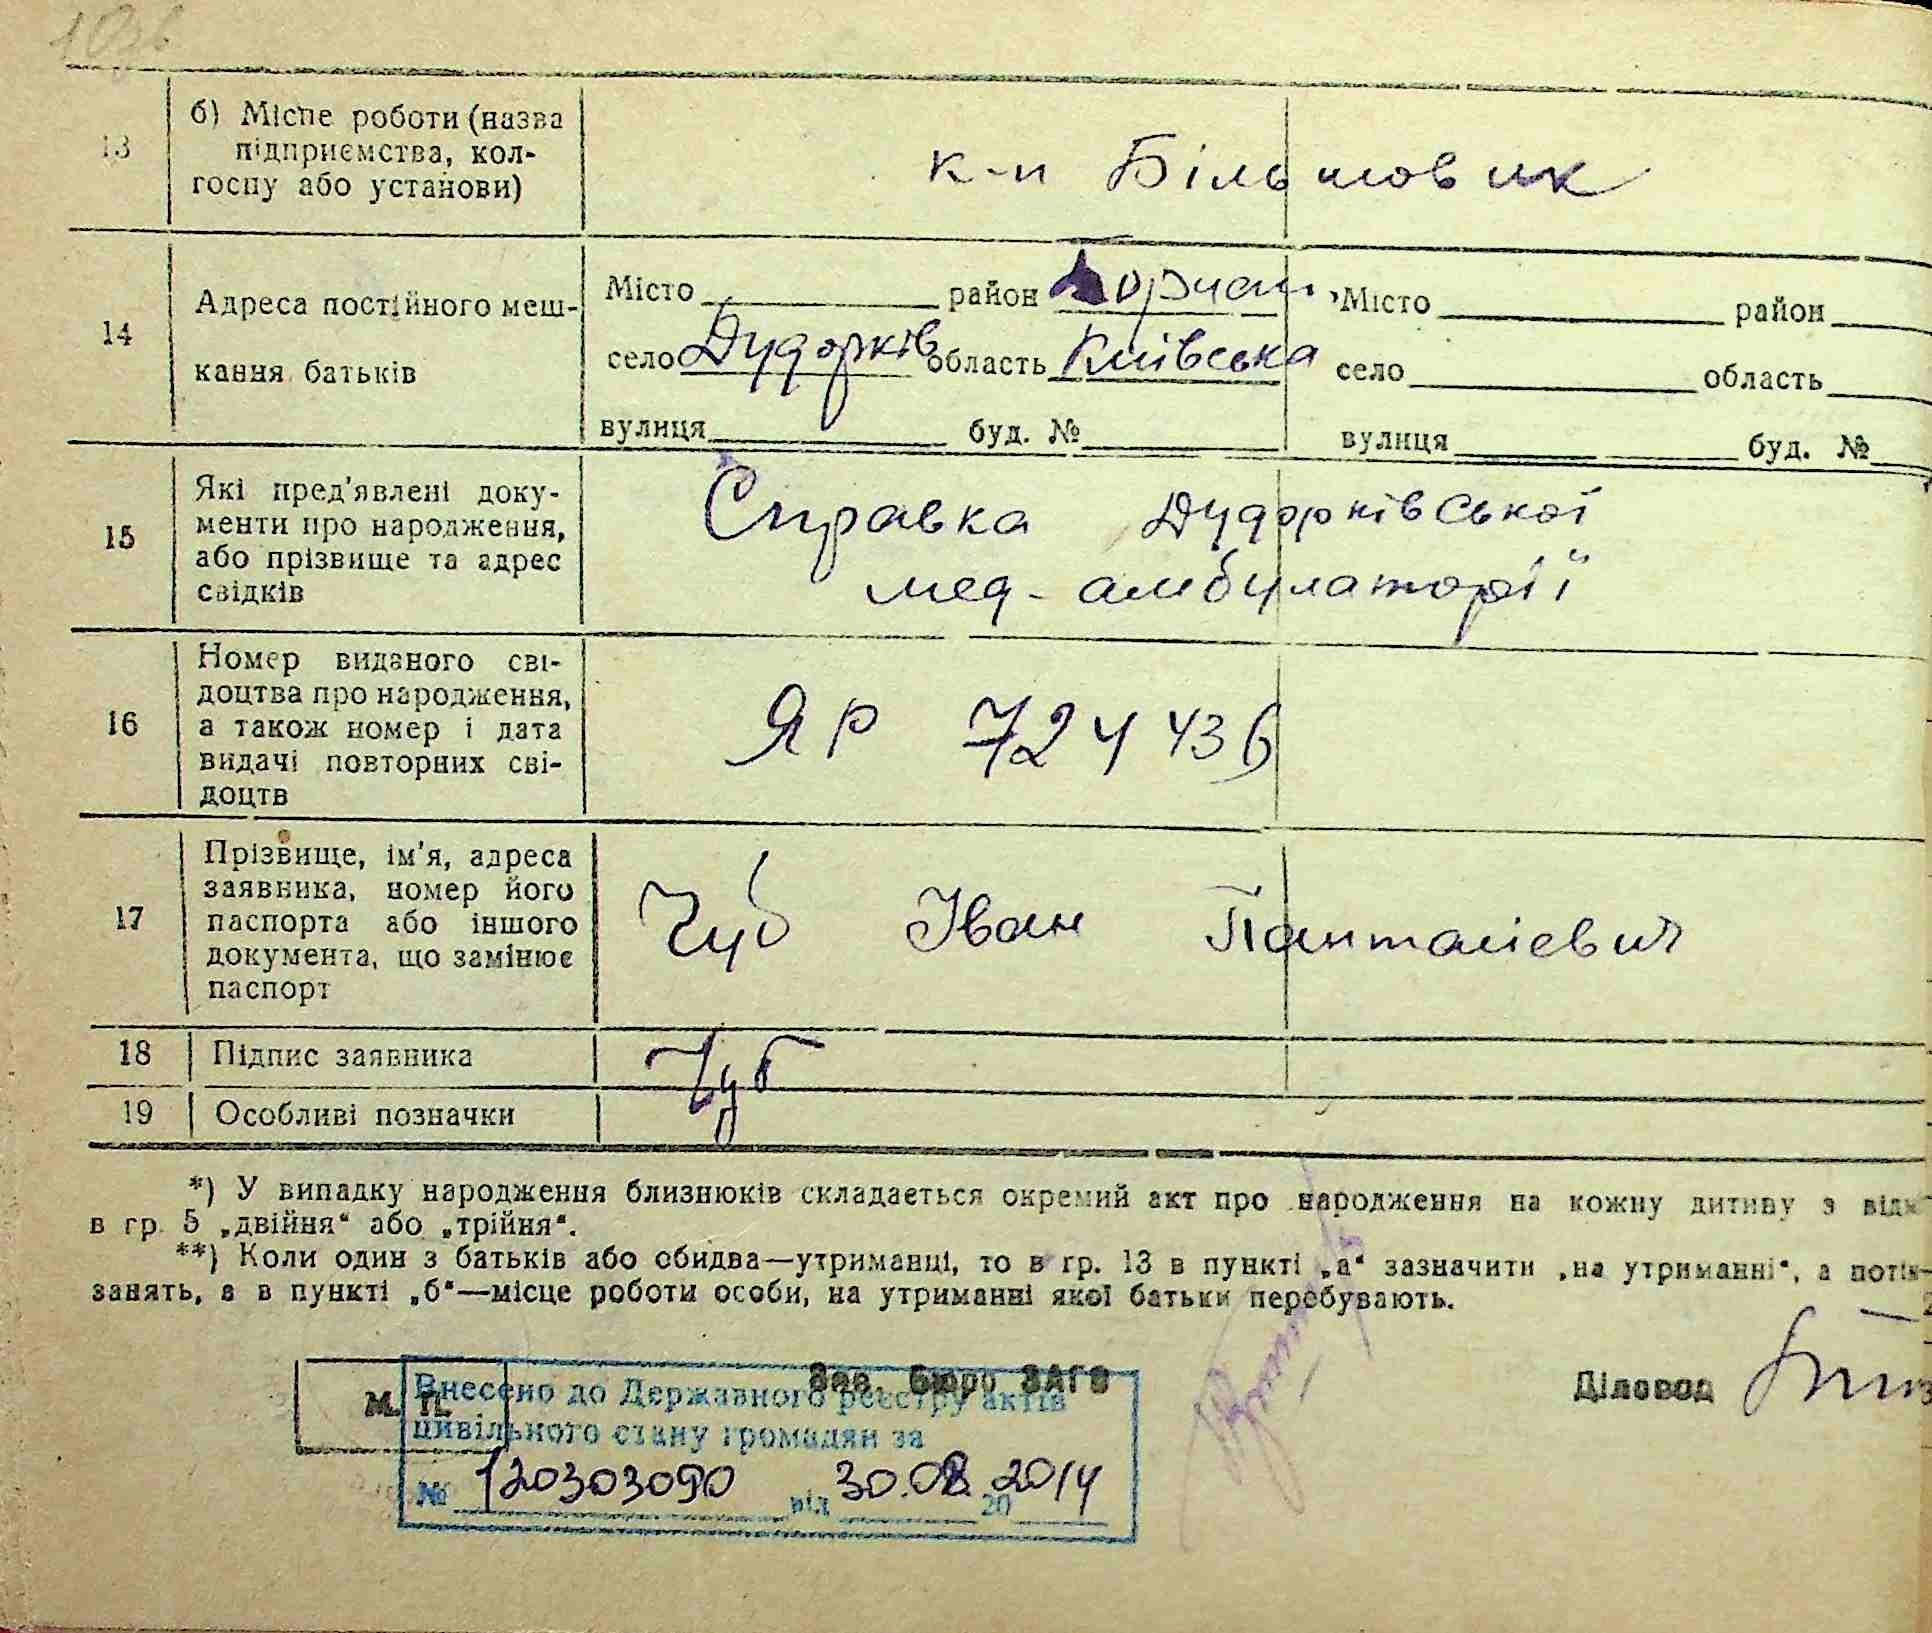 13 б) Місце роботи (назва
підприємства, кол-
госпу або установи)
к-п Більшовик
14 Адреса постійного меш-
кання батьків
Місто район Борчан, Місто район
село Дударків область Київська село область
вулиця буд. № вулиця буд. №
15 Які пред'явлені доку-
менти про народження,
або прізвище та адрес
свідків
Справка Дударківської
мед-амбулаторії
16 Номер виданого сві-
доцтва про народження,
а також номер і дата
видачі повторних сві-
доцтв
ЯР 724436
17 Прізвище, ім'я, адреса
заявника, номер його
паспорта або іншого
документа, що замінює
паспорт
Чуб Іван Панталієвич
18 Підпис заявника Чуб
19 Особливі позначки
*) У випадку народження близнюків складається окремий акт про народження на кожну дитину з відм
в гр. 5 „двійня“ або „трійня“.
**) Коли один з батьків або обидва—утриманці, то в гр. 13 в пункті „а“ зазначити „на утриманні“, а потім
занять, а в пункті „б“—місце роботи особи, на утриманні якої батьки перебувають.
М. П. Зав. Бюро ЗАГС
Діловод
Внесено до Державного реєстру актів
цивільного стану громадян за
№ 120303090 від 30.08.2014
20